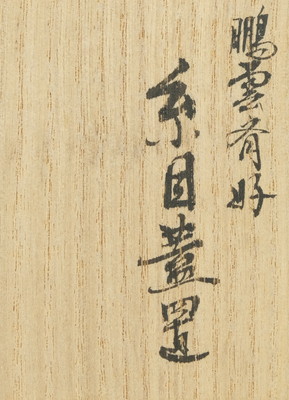 鵬雲斎好
糸目蓋置